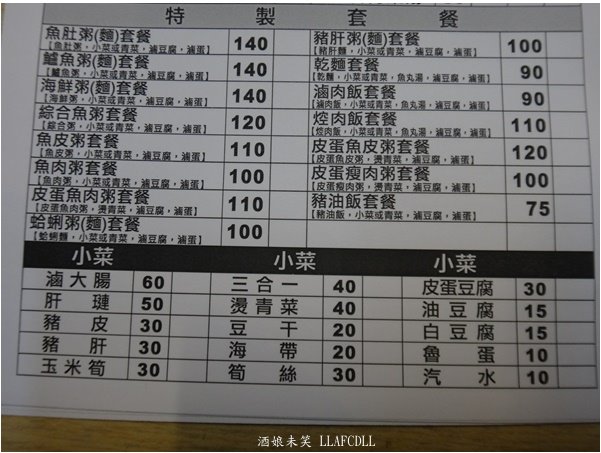 特 製 套 餐
魚肚粥(麵)套餐 140 豬肝粥(麵)套餐 100
【魚肚粥，小菜或青菜，滷豆腐，滷蛋】 【豬肝麵，小菜或青菜，滷豆腐，滷蛋】
鱸魚粥(麵)套餐 140 乾麵套餐 90
【鱸魚粥，小菜或青菜，滷豆腐，滷蛋】 【乾麵，小菜或青菜，魚丸湯，滷豆腐，滷蛋】
海鮮粥(麵)套餐 140 滷肉飯套餐 90
【海鮮粥，小菜或青菜，滷豆腐，滷蛋】 【滷肉飯，小菜或青菜，魚丸湯，滷豆腐，滷蛋】
綜合魚粥套餐 120 焢肉飯套餐 110
【綜合粥，小菜或青菜，滷豆腐，滷蛋】 【焢肉飯，小菜或青菜，魚丸湯，滷豆腐，滷蛋】
魚皮粥套餐 110 皮蛋魚皮粥套餐 120
【魚皮粥，小菜或青菜，滷豆腐，滷蛋】 【皮蛋魚皮粥，燙青菜，滷豆腐，滷蛋】
魚肉粥套餐 100 皮蛋瘦肉粥套餐 100
【魚肉粥，小菜或青菜，滷豆腐，滷蛋】 【皮蛋瘦肉粥，燙青菜，滷豆腐，滷蛋】
皮蛋魚肉粥套餐 110 豬油飯套餐 75
【皮蛋魚肉粥，燙青菜，滷豆腐，滷蛋】 【豬油飯，小菜或青菜，滷豆腐，滷蛋】
蛤蜊粥(麵)套餐 100
【蛤蜊麵，小菜或青菜，滷豆腐，滷蛋】
小菜 小菜 小菜
滷大腸 60 三合一 40 皮蛋豆腐 30
肝 璉 50 燙青菜 40 油豆腐 15
豬 皮 30 豆 干 20 白豆腐 15
豬 肝 30 海 帶 20 魯 蛋 10
玉米筍 30 筍 絲 30 汽 水 10
酒娘未笑 LLAFCDLL